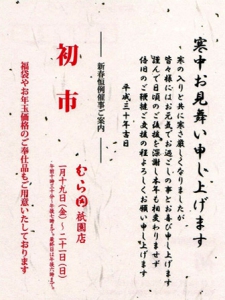 寒中お見舞い申し上げます
寒の入りと共に寒さ厳しくなりましたが
皆々様にはお元気でお過ごしの事とお喜び申し上げます
謹んで日頃のご厚援を感謝し本年も相変わりませず
倍旧のご鞭撻ご支援の程よろしくお願い申し上げます
平成三十年吉日
新春恒例催事ご案内
初市
むら田祇園店
一月十九日(金)～二十一日(日)
福袋やお年玉価格のご奉仕品もご用意いたしております